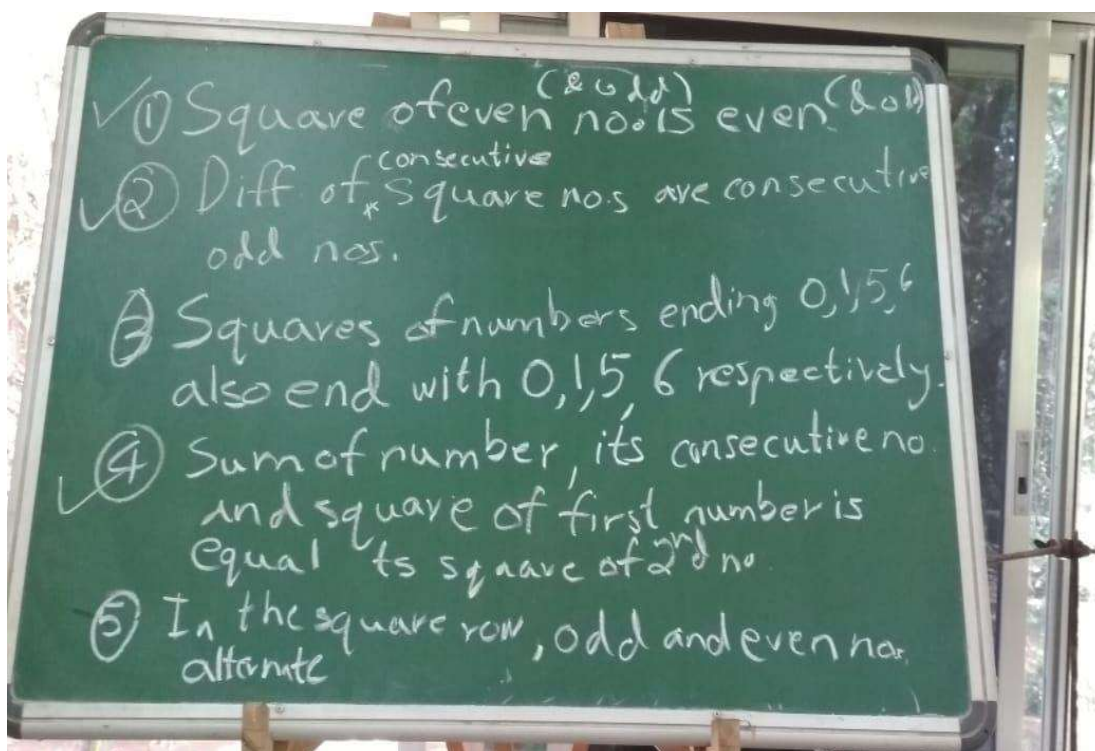 (& odd)
① Square of even no. is even (& odd)
consecutive
② Diff of * square nos are consecutive
odd nos.
③ Squares of numbers ending 0,1,5,6
also end with 0,1,5, 6 respectively.
④ Sum of number, its consecutive no.
and square of first number is
equal to square of 2nd no
⑤ In the square row, odd and even nos.
alternate